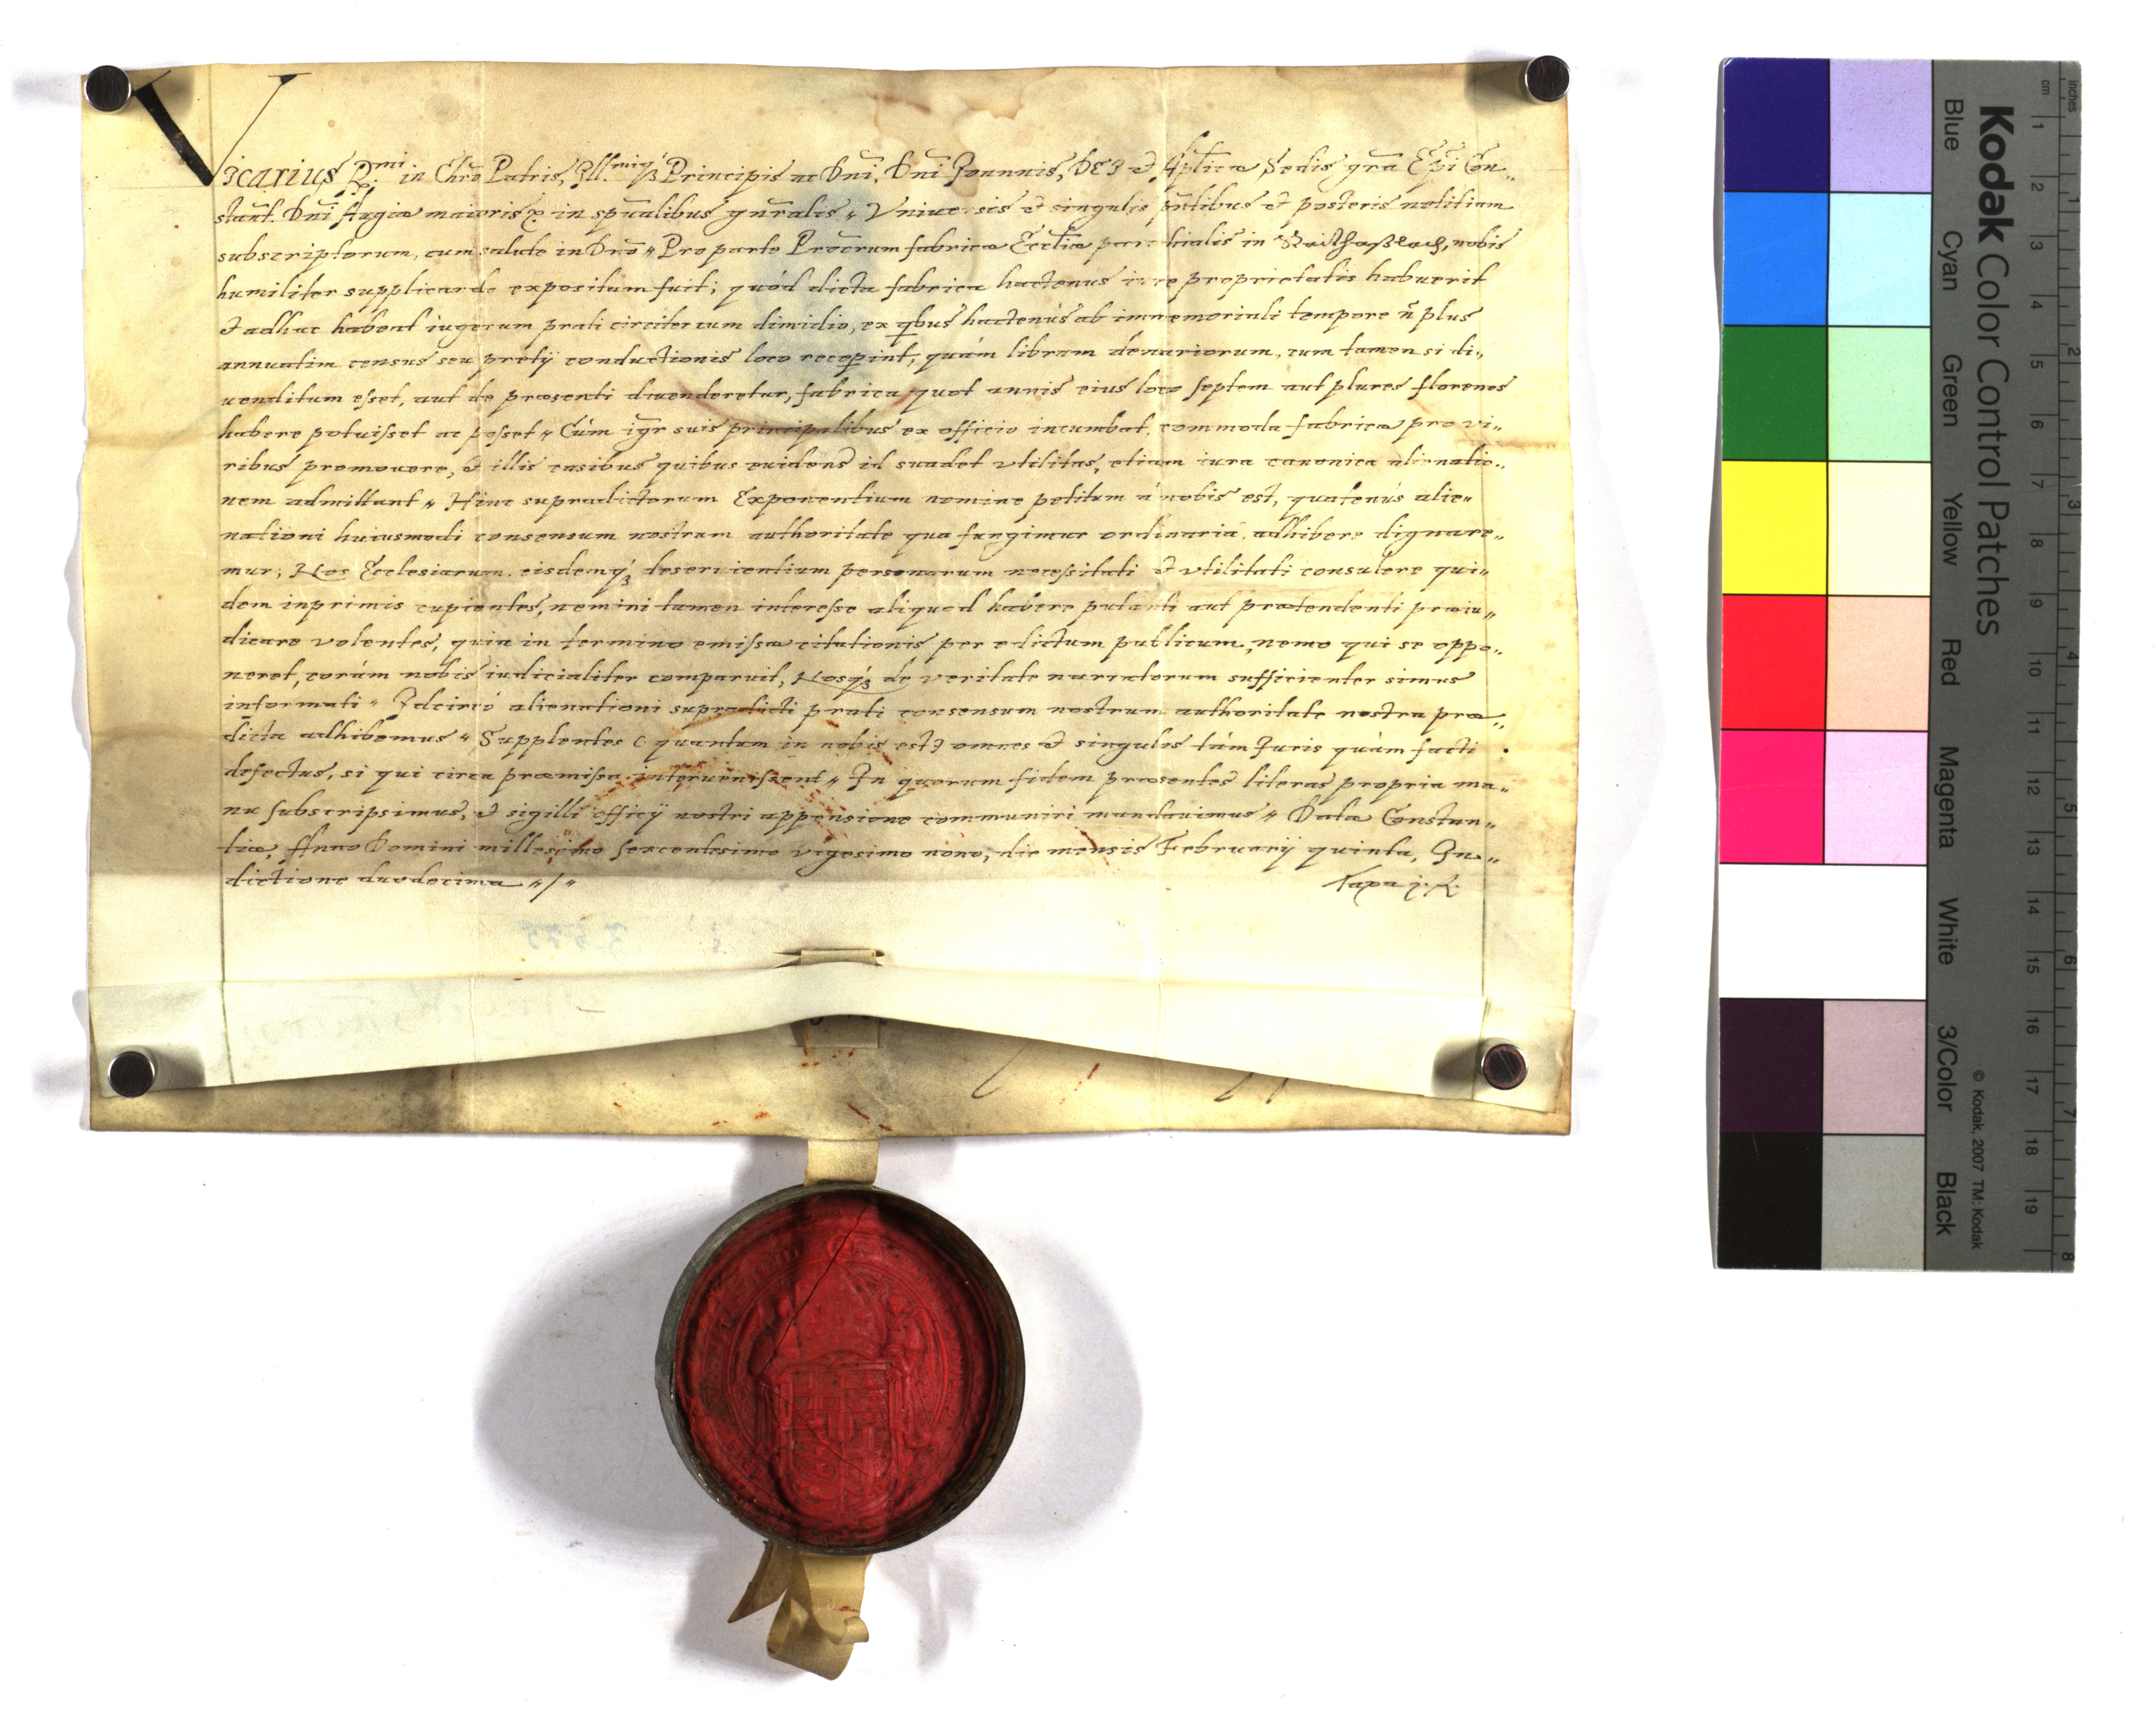 Vicarius R.mi in Chro Patris, Ill.miq3 Principis ac Dni, Dni Joannis, DEI et Aplicæ Sedis gra Epi Con„
stant. Dni Augiæ maioris in spualibus gnralis „ Vniuersis et singulis pntibus et posteris notitiam
subscriptorum, cum salute in Dno „ Pro parte Procrum fabricæ Eccliæ parochialis in nobis
humiliter supplicando expositum fuit; quód dicta fabrica hactenus iure proprietatis habuerit
et adhuc habeat iugerum prati circiter cum dimidio, ex qbus hactenus ab immemoriali tempore n plus
annuatim census seu pretÿ conductionis loco recepint, quám libram denariorum, cum tamen si di„
uenditum esset, aut de præsenti diuenderetur, fabrica quot annis eius loco septem aut plures florenos
habere potuisset ac posset „ Cùm igr suis principalibus ex officio incumbat, commoda fabricæ pro vi„
ribus promouere, et illis casibus quibus euidens id suadet vtilitas, etiam iura canonica alienatio„
nem admittant „ Hinc supradictorum Exponentium nomine petitum á nobis est, quatenús alie„
nationi huiusmodi consensum nostrum authoritate qua fungimur ordinariá adhibere dignare„
mur; Nos Ecclesiarum eisdemq3 deseruientium personarum necessitati et vtilitati consulere qui„
dem inprimis cupientes, nemini tamen interesse aliquod habere putanti aut prætendenti præiu„
dicare volentes, quia in termino emissæ citationis per edictum publicum, nemo qui se oppo„
neret, corám nobis iudicialiter comparuit, Nosq3 de veritate narratorum sufficienter simus
informati „ Idcircó alienationi supradicti prati consensum nostrum authoritate nostra præ„
dicta adhibemus „ Supplentes ( quantum in nobis est ) omnes et singulos tám Juris quàm facti
defectus, si qui circa præmissa interuenissent „ In quorum fidem præsentes literas propria ma„
nu subscripsimus, et sigilli officÿ nostri appensione communiri mandauimus „ Datæ Constan„
tiæ, Anno Domini millesimo sexcentesimo vigesimo nono, die mensis Februarÿ quinta, In„
dictione duodecima „/„ Taxa
Kodak Color Control Patches
Blue Cyan Green Yellow Red Magenta White 3/Color Black
© Kodak, 2007 TM: Kodak
inches 1 2 3 4 5 6 7 8
cm 1 2 3 4 5 6 7 8 9 10 11 12 13 14 15 16 17 18 19